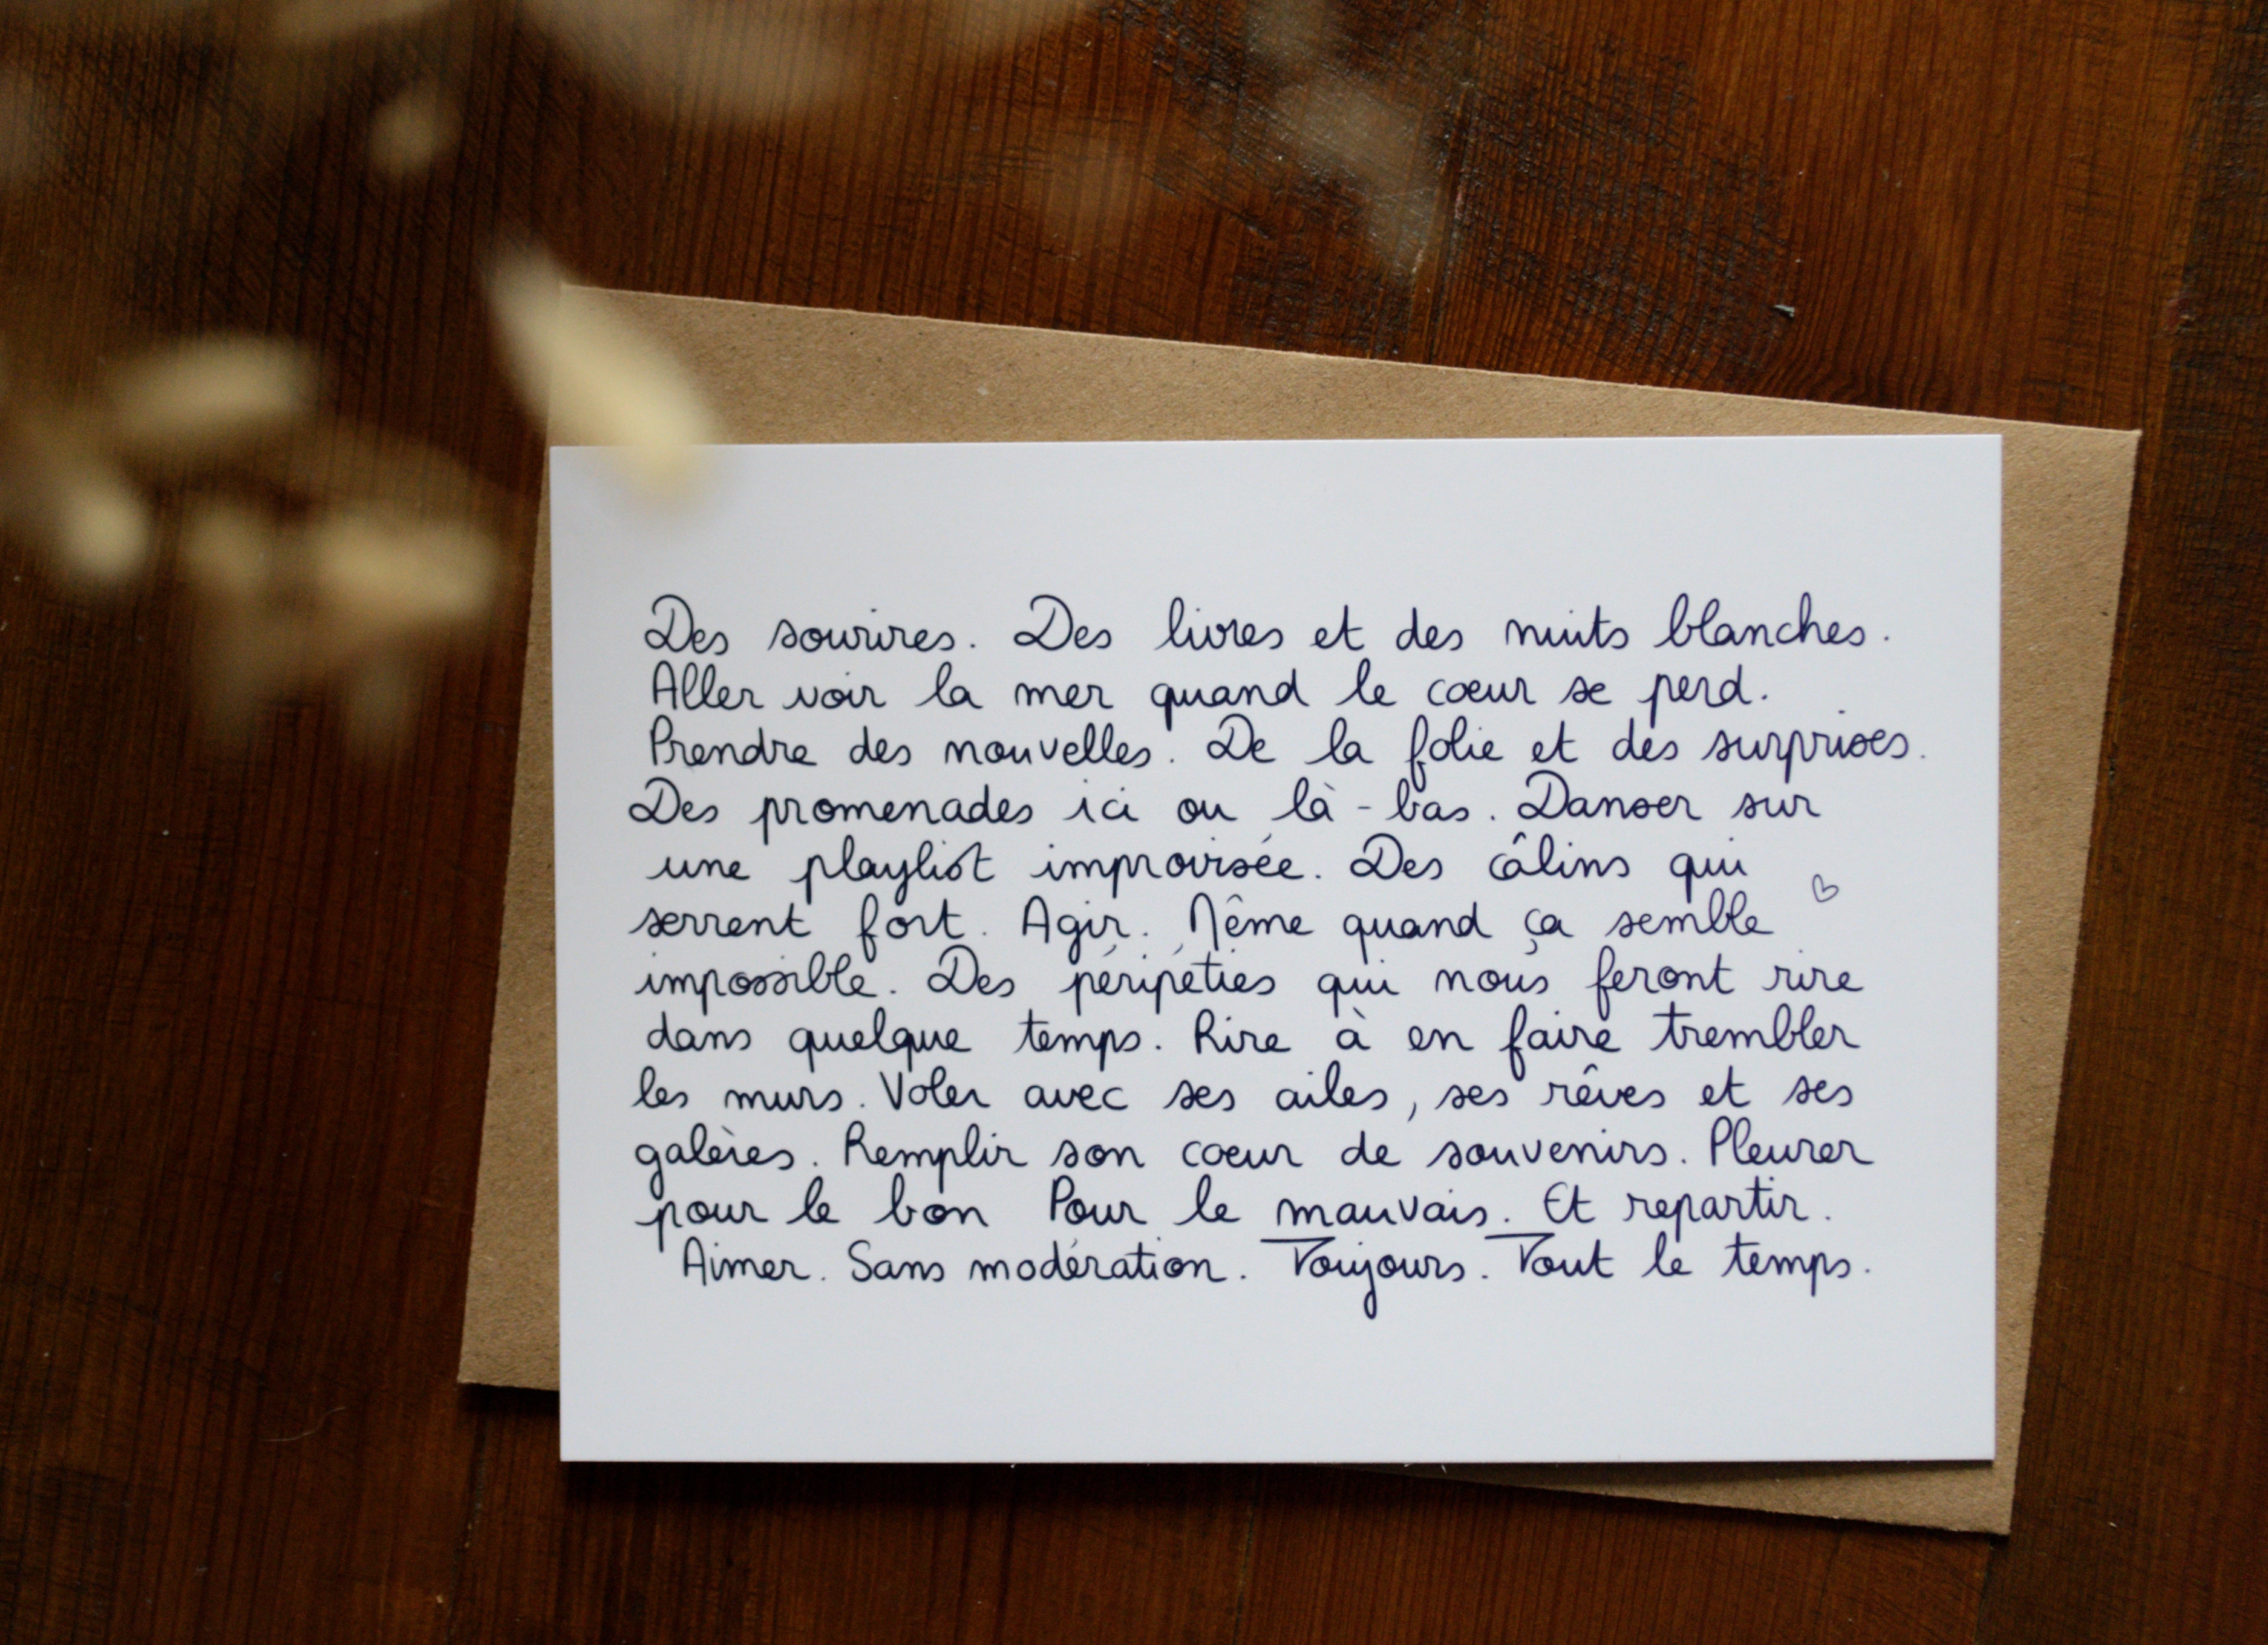 Des sourires. Des livres et des nuits blanches.
Aller voir la mer quand le cœur se perd.
Prendre des nouvelles. De la folie et des surprises.
Des promenades ici ou là-bas. Danser sur
une playlist improvisée. Des câlins qui
serrent fort. Agir. Même quand ça semble
impossible. Des péripéties qui nous feront rire
dans quelque temps. Rire à en faire trembler
les murs. Voler avec ses ailes, ses rêves et ses
galères. Remplir son cœur de souvenirs. Pleurer
pour le bon Pour le mauvais. Et repartir.
Aimer. Sans modération. Toujours. Tout le temps.